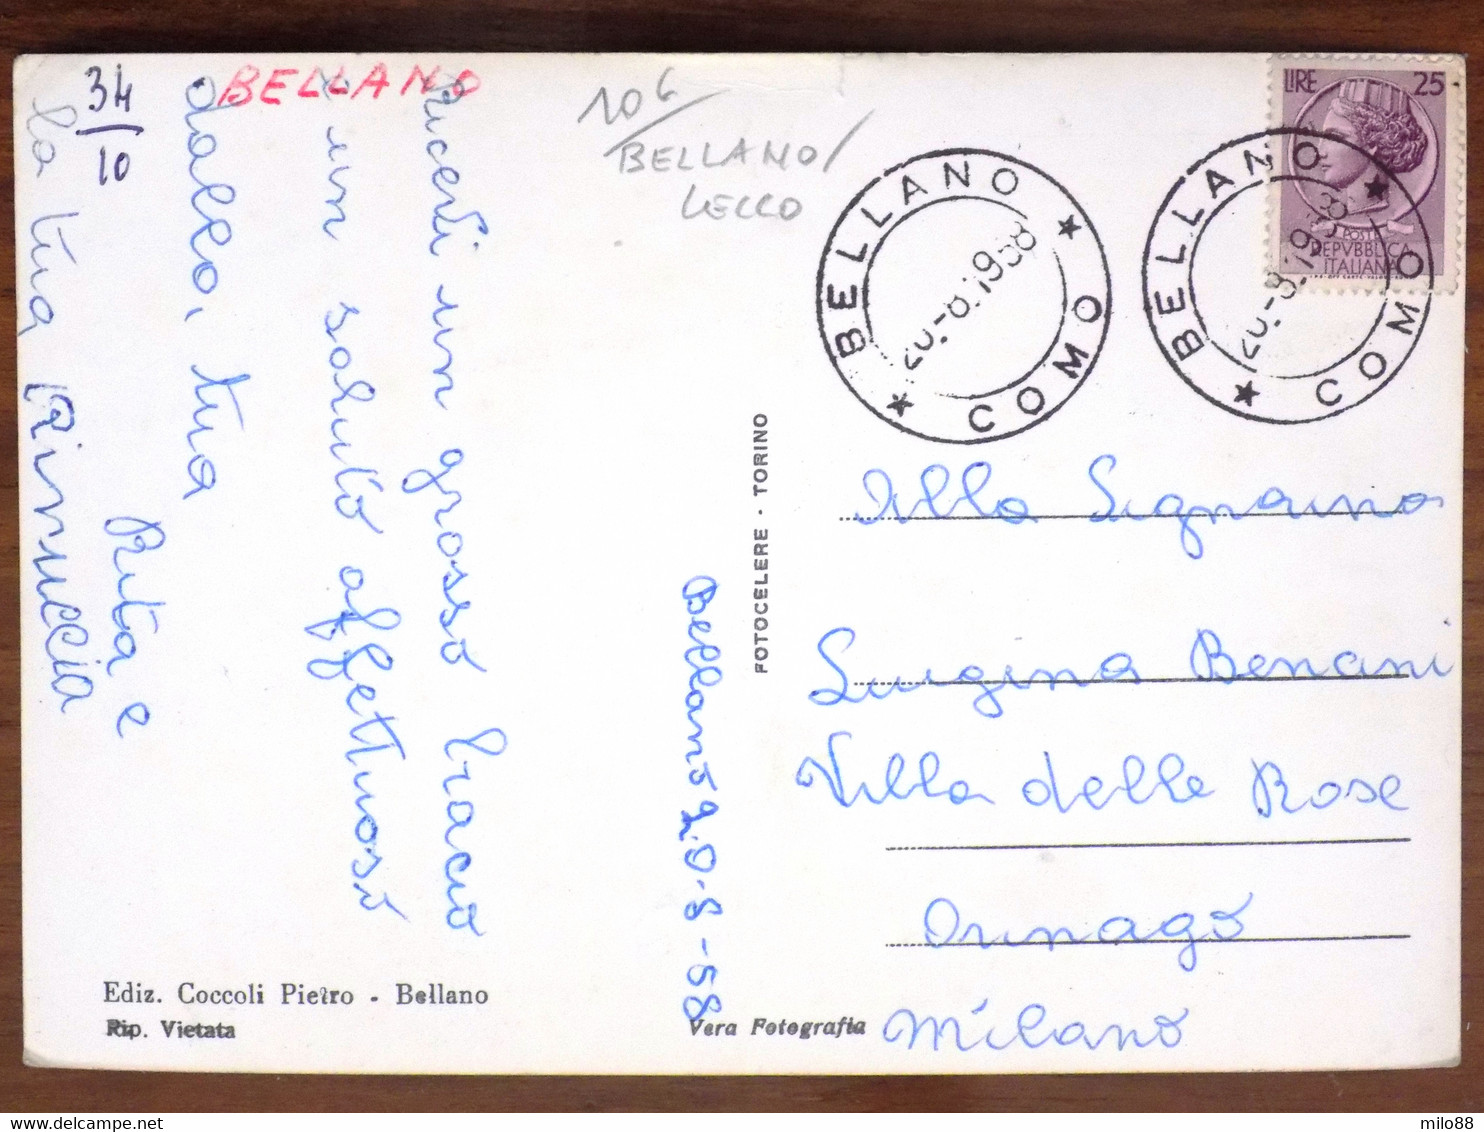 34
10
BELLANO
10 6
BELLANO/
LECCO
Ricevi un grosso bacio
e un saluto affettuoso
dallo, tua
Rita e
la tua Rinuccia
Bellano 20-8-58
FOTOCELERE - TORINO
LIRE 25
POSTE
REPVBBLICA
ITALIANA
BELLANO ★ COMO ★
20.-8.1958
BELLANO ★ COMO ★
20.-8.1958
Alla Signorina
Luigina Benani
Villa delle Rose
Ornago
Milano
Ediz. Coccoli Pietro - Bellano
Rip. Vietata
Vera Fotografia
milo88